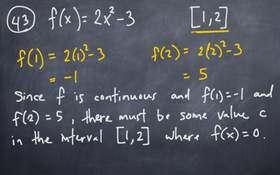 43 f(x) = 2x² - 3 [1,2]
f(1) = 2(1)² - 3 f(2) = 2(2)² - 3
= -1 = 5
Since f is continuous and f(1) = -1 and
f(2) = 5, there must be some value c
in the interval [1,2] where f(x) = 0.